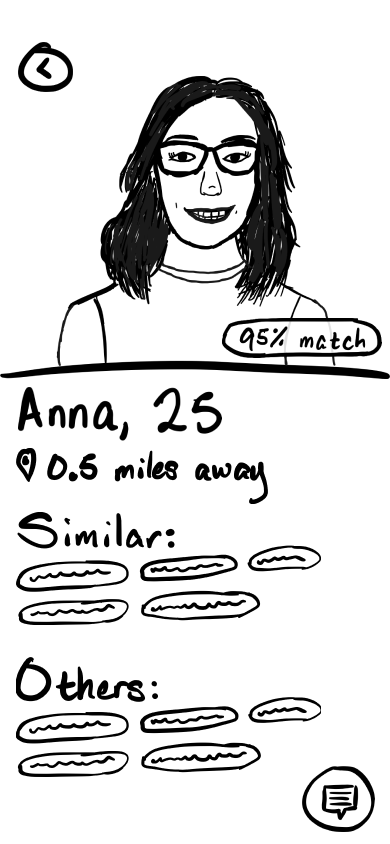 95% match
Anna, 25
0.5 miles away
Similar:
Others: